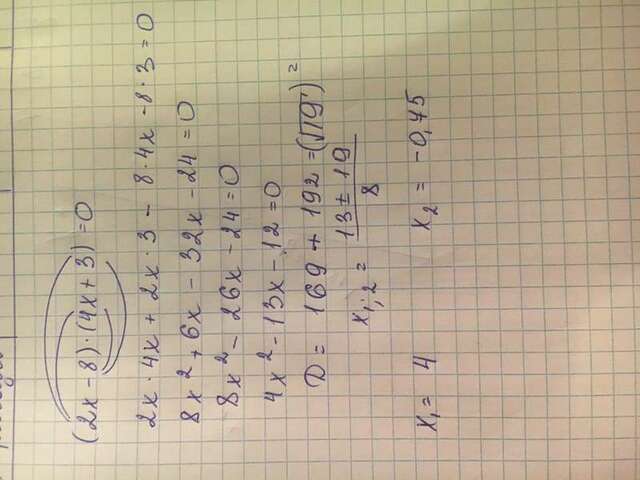 (2x - 8) · (4x + 3) = 0
2x · 4x + 2x · 3 - 8 · 4x - 8 · 3 = 0
8x² + 6x - 32x - 24 = 0
8x² - 26x - 24 = 0
4x² - 13x - 12 = 0
D = 169 + 192 = (√19)²
x₁;₂ = (13 ± 19)/8
x₁ = 4 x₂ = -0,75